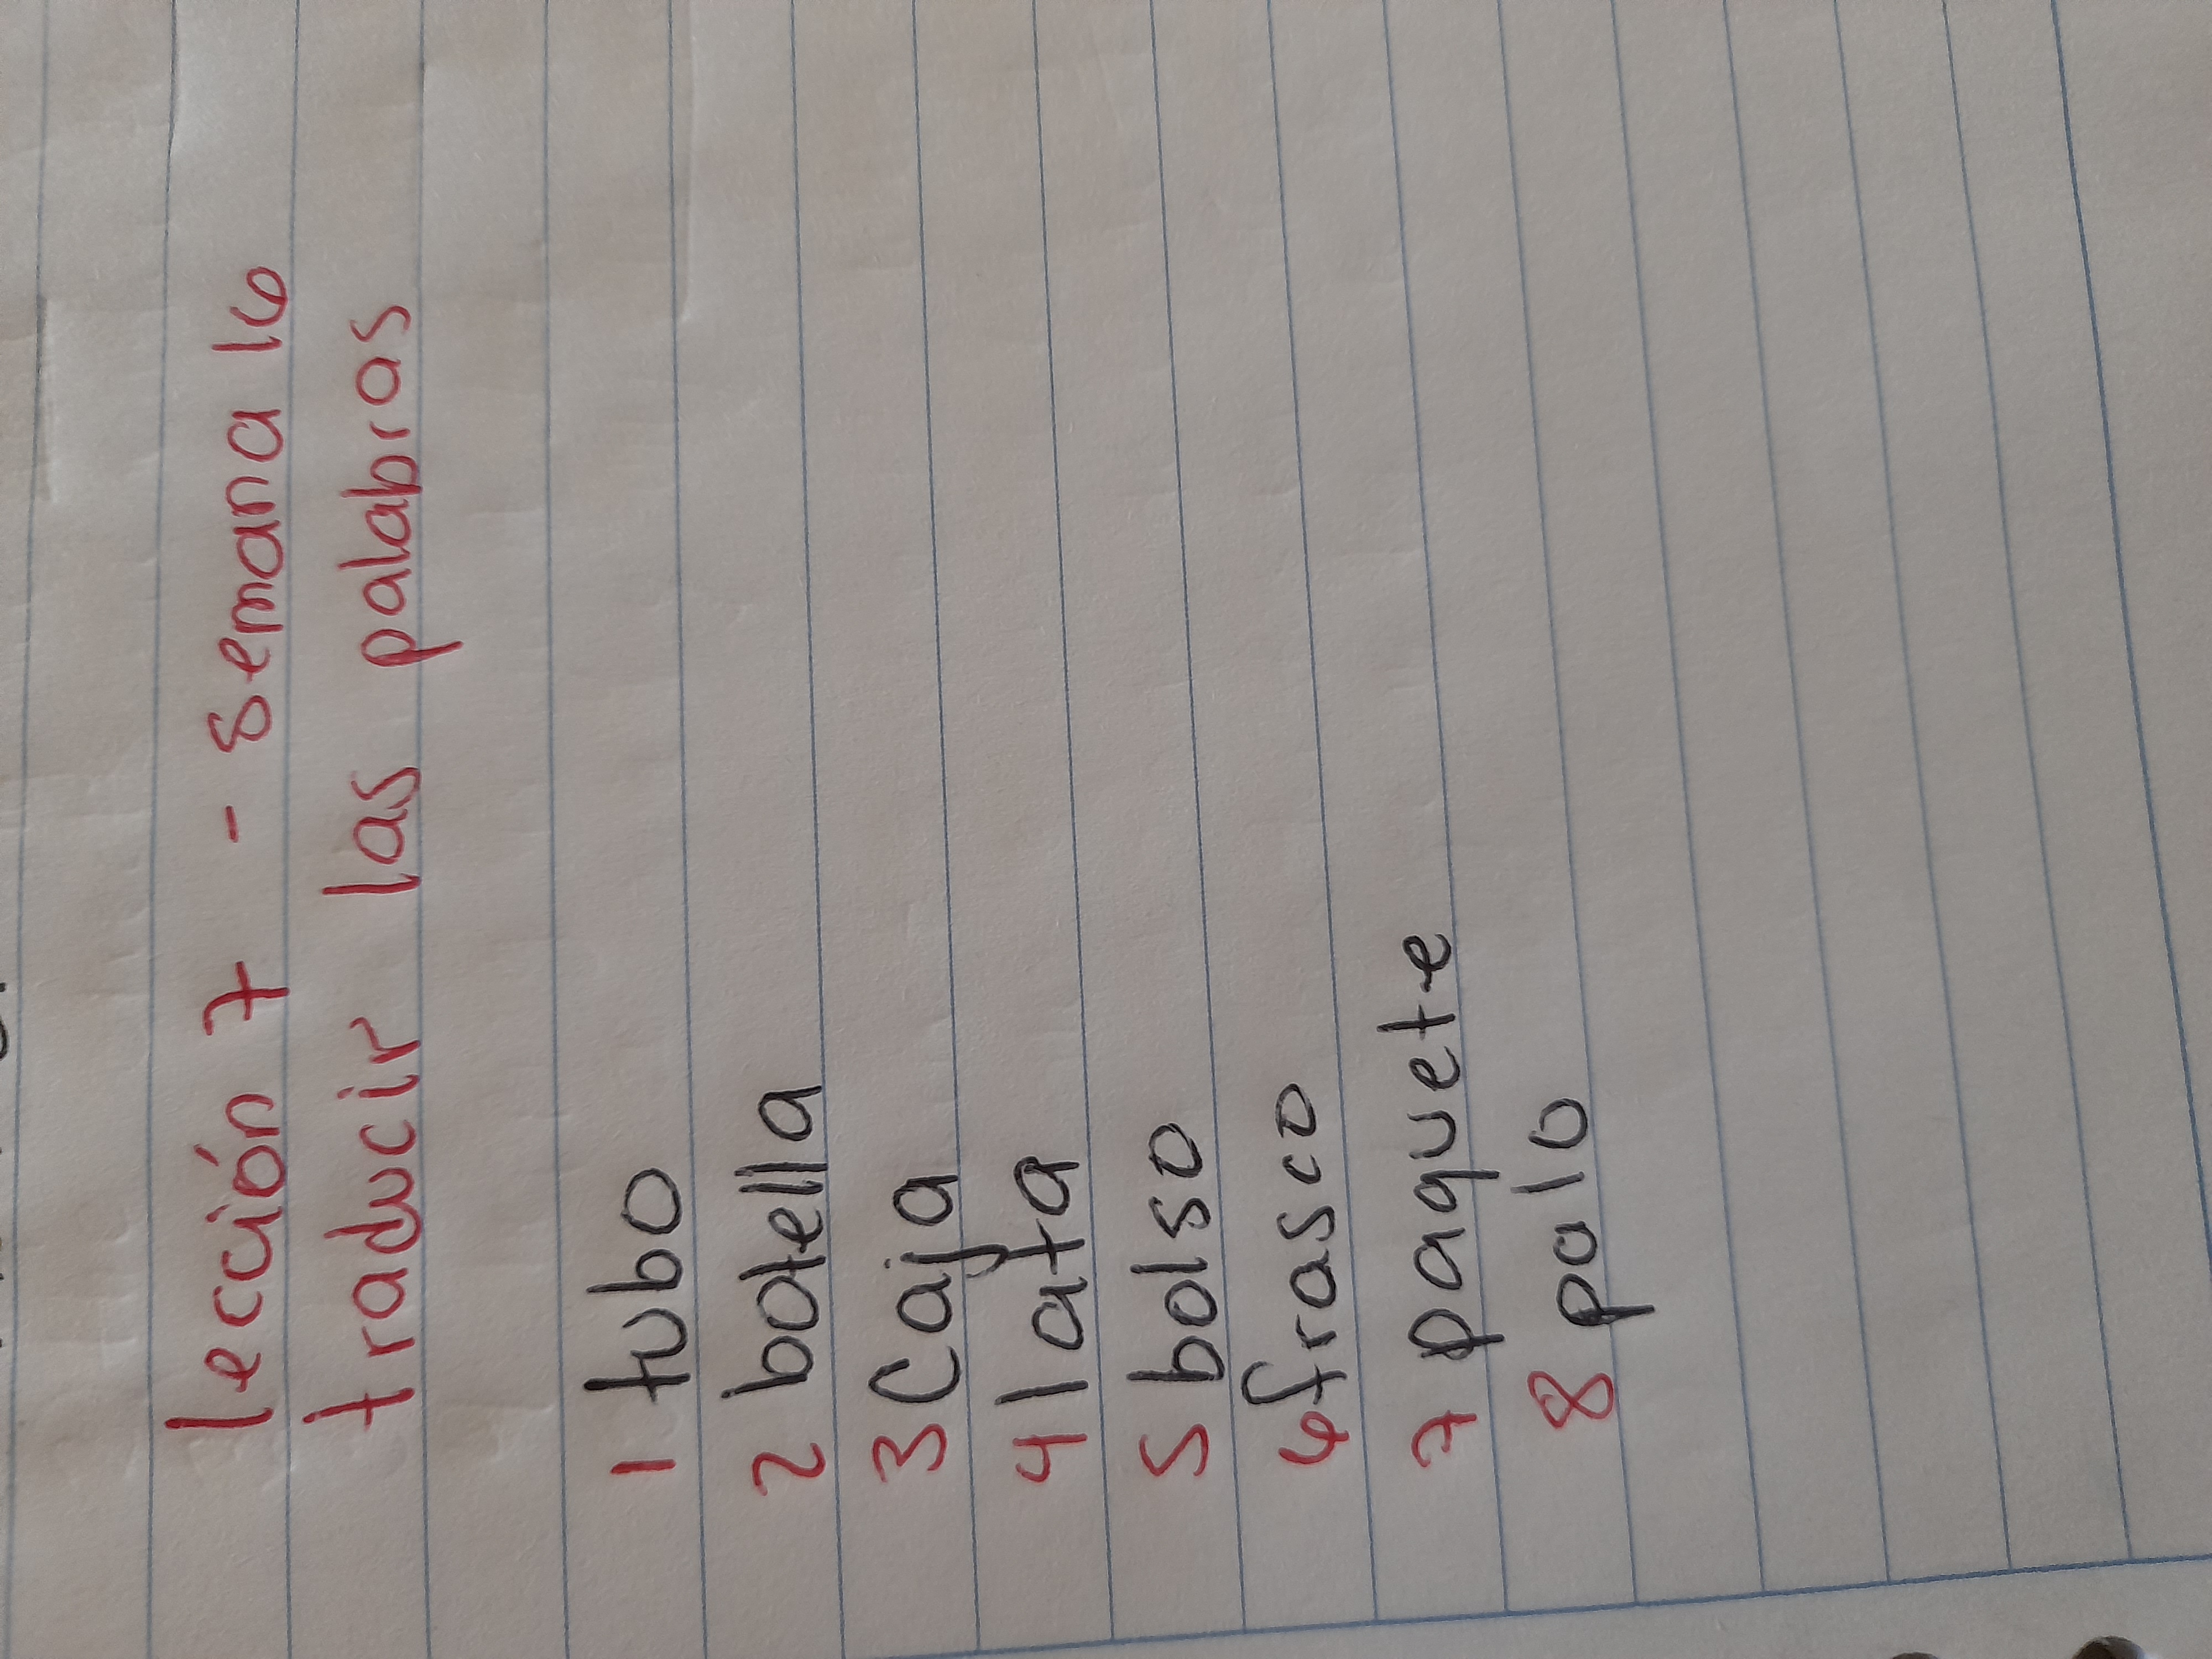 lección 7 - semana 16
traducir las palabras
1 tubo
2 botella
3 Caja
4 lata
5 bolso
6 frasco
7 paquete
8 palo